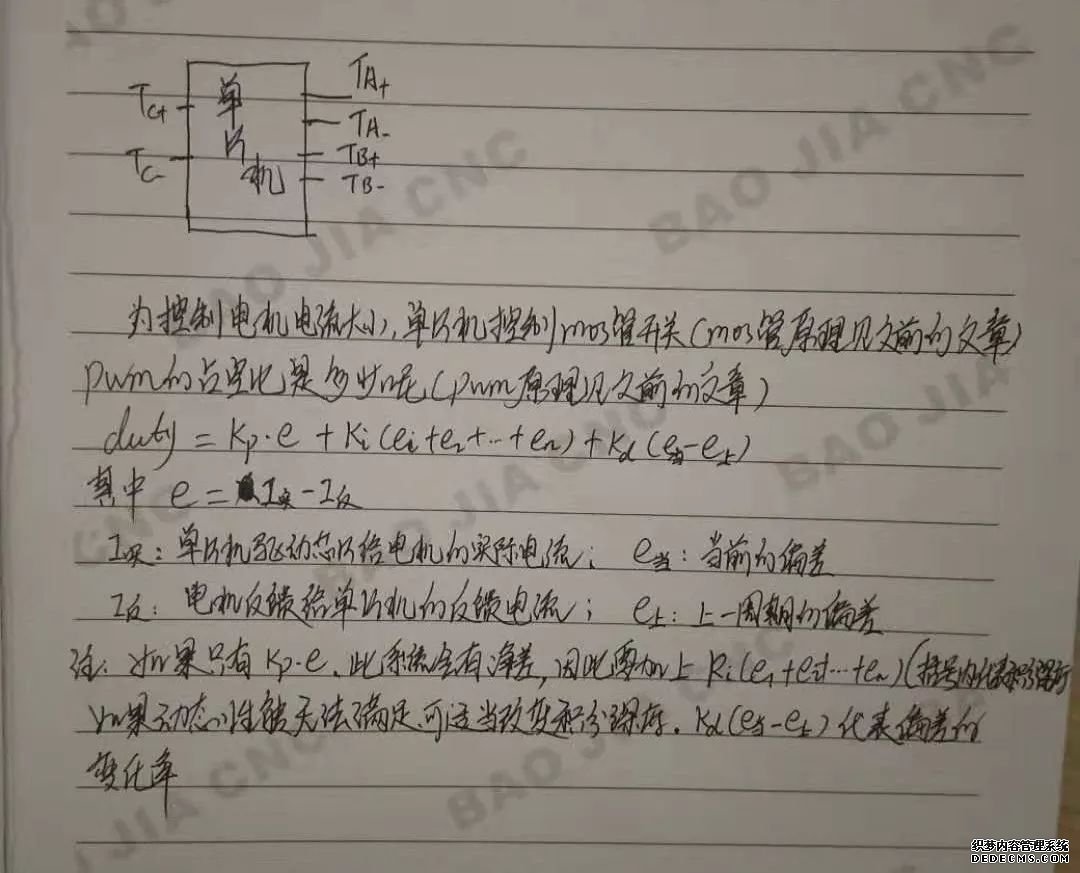 TC+
TC-
单片机
TA+
TA-
TB+
TB-
为控制电机电流大小,单片机控制mos管开关(mos管原理见之前的文章)
pwm的占空比是多少呢(pwm原理见之前的文章)
duty = Kp·e + Ki(e1+e2+…+en)+Kd(e当-e上)
其中 e = I实-I反
I实:单片机驱动芯片给电机的实际电流; e当:当前的偏差
I反:电机反馈给单片机的反馈电流; e上:上一周期的偏差
注:如果只有Kp·e,此系统会有净差,因此要加上Ki(e1+e2+…+en)(括号内代表积分误差)
如果动态性能无法满足,可适当改变积分误差。Kd(e当-e上)代表偏差的
变化率
BAO JIA CNC
织梦内容管理系统
DEDECMS.COM